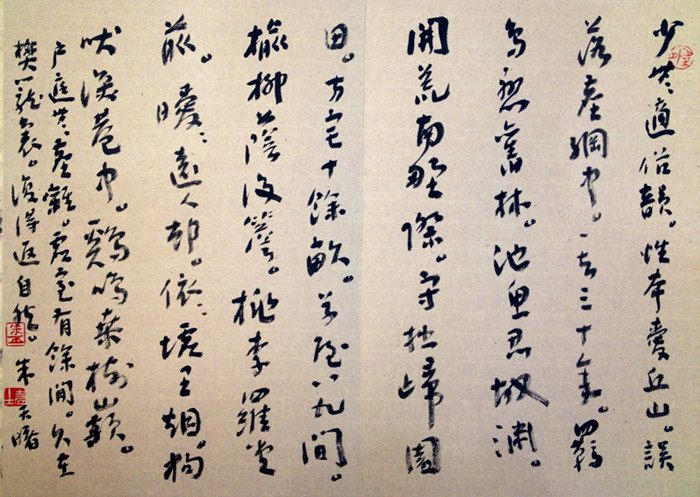 少无適俗韻。性本愛丘山。誤
落塵網中。一去三十年。羈
鳥戀舊林。池魚思故淵。
開荒南野際。守拙歸園
田。方宅十餘畝。草屋八九間。
榆柳蔭後簷。桃李羅堂
前。曖〻遠人邨。依〻墟里烟。狗
吠深巷中。鷄鳴桑樹巔。
户庭无塵雜。虛室有餘閒。久在
樊籠裏。復得返自然。朱天曙